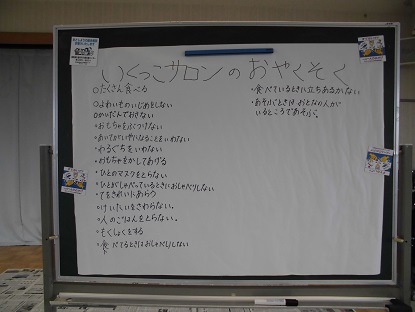 いくっこサロンのおやくそく
○たくさん食べる
○よわいものいじめをしない
○かいだんでおさない
・おもちゃをぶつけない
・あいてがいやになることをいわない
・わるぐちをいわない
・おもちゃをかしてあげる
・ひとのマスクをとらない
・ひとがしゃべっているときにおしゃべりしない
・てをきれいにあらう
・けいたいをさわらない。
・人のごはんをとらない。
・もくしょくをする
・食べてるときはおしゃべりしない
・食べているときに立ちあるかない
・あそぶときはおとなの人がいるところであそぶ。